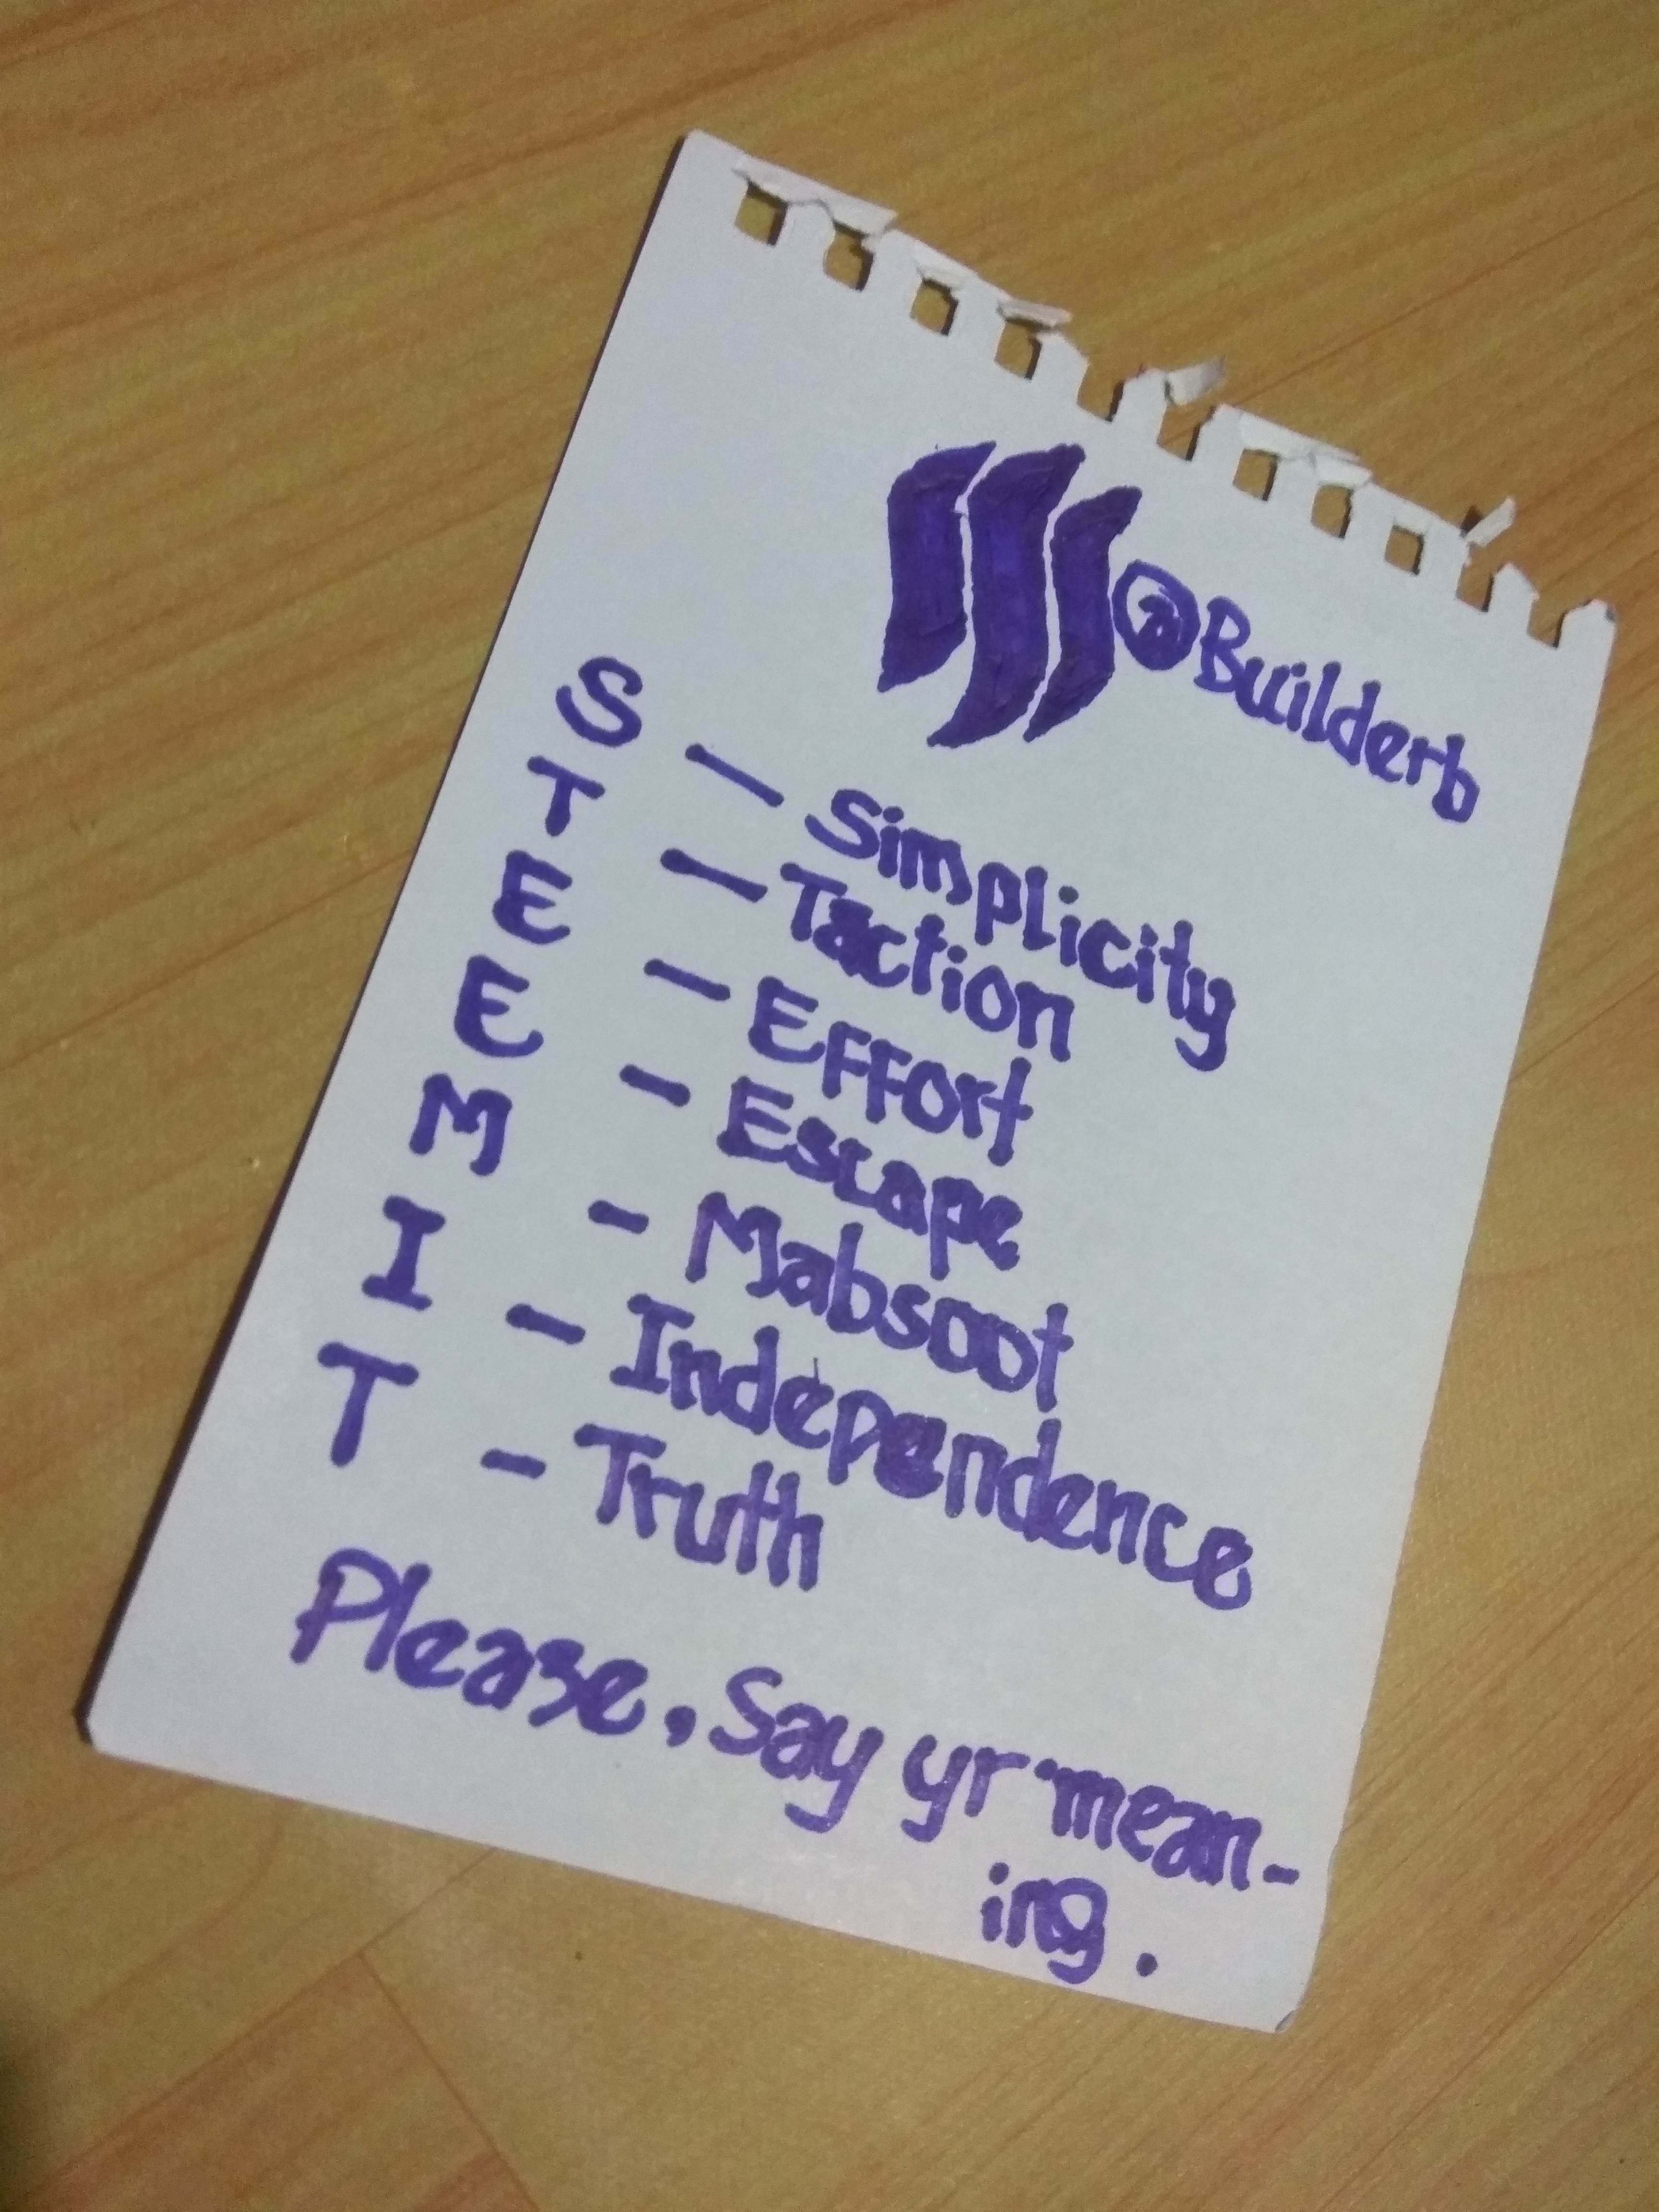 @Builderb
S - Simplicity
T - Taction
E - Effort
E - Escape
M - Mabsoot
I - Independence
T - Truth
Please, Say yr mean-
ing.